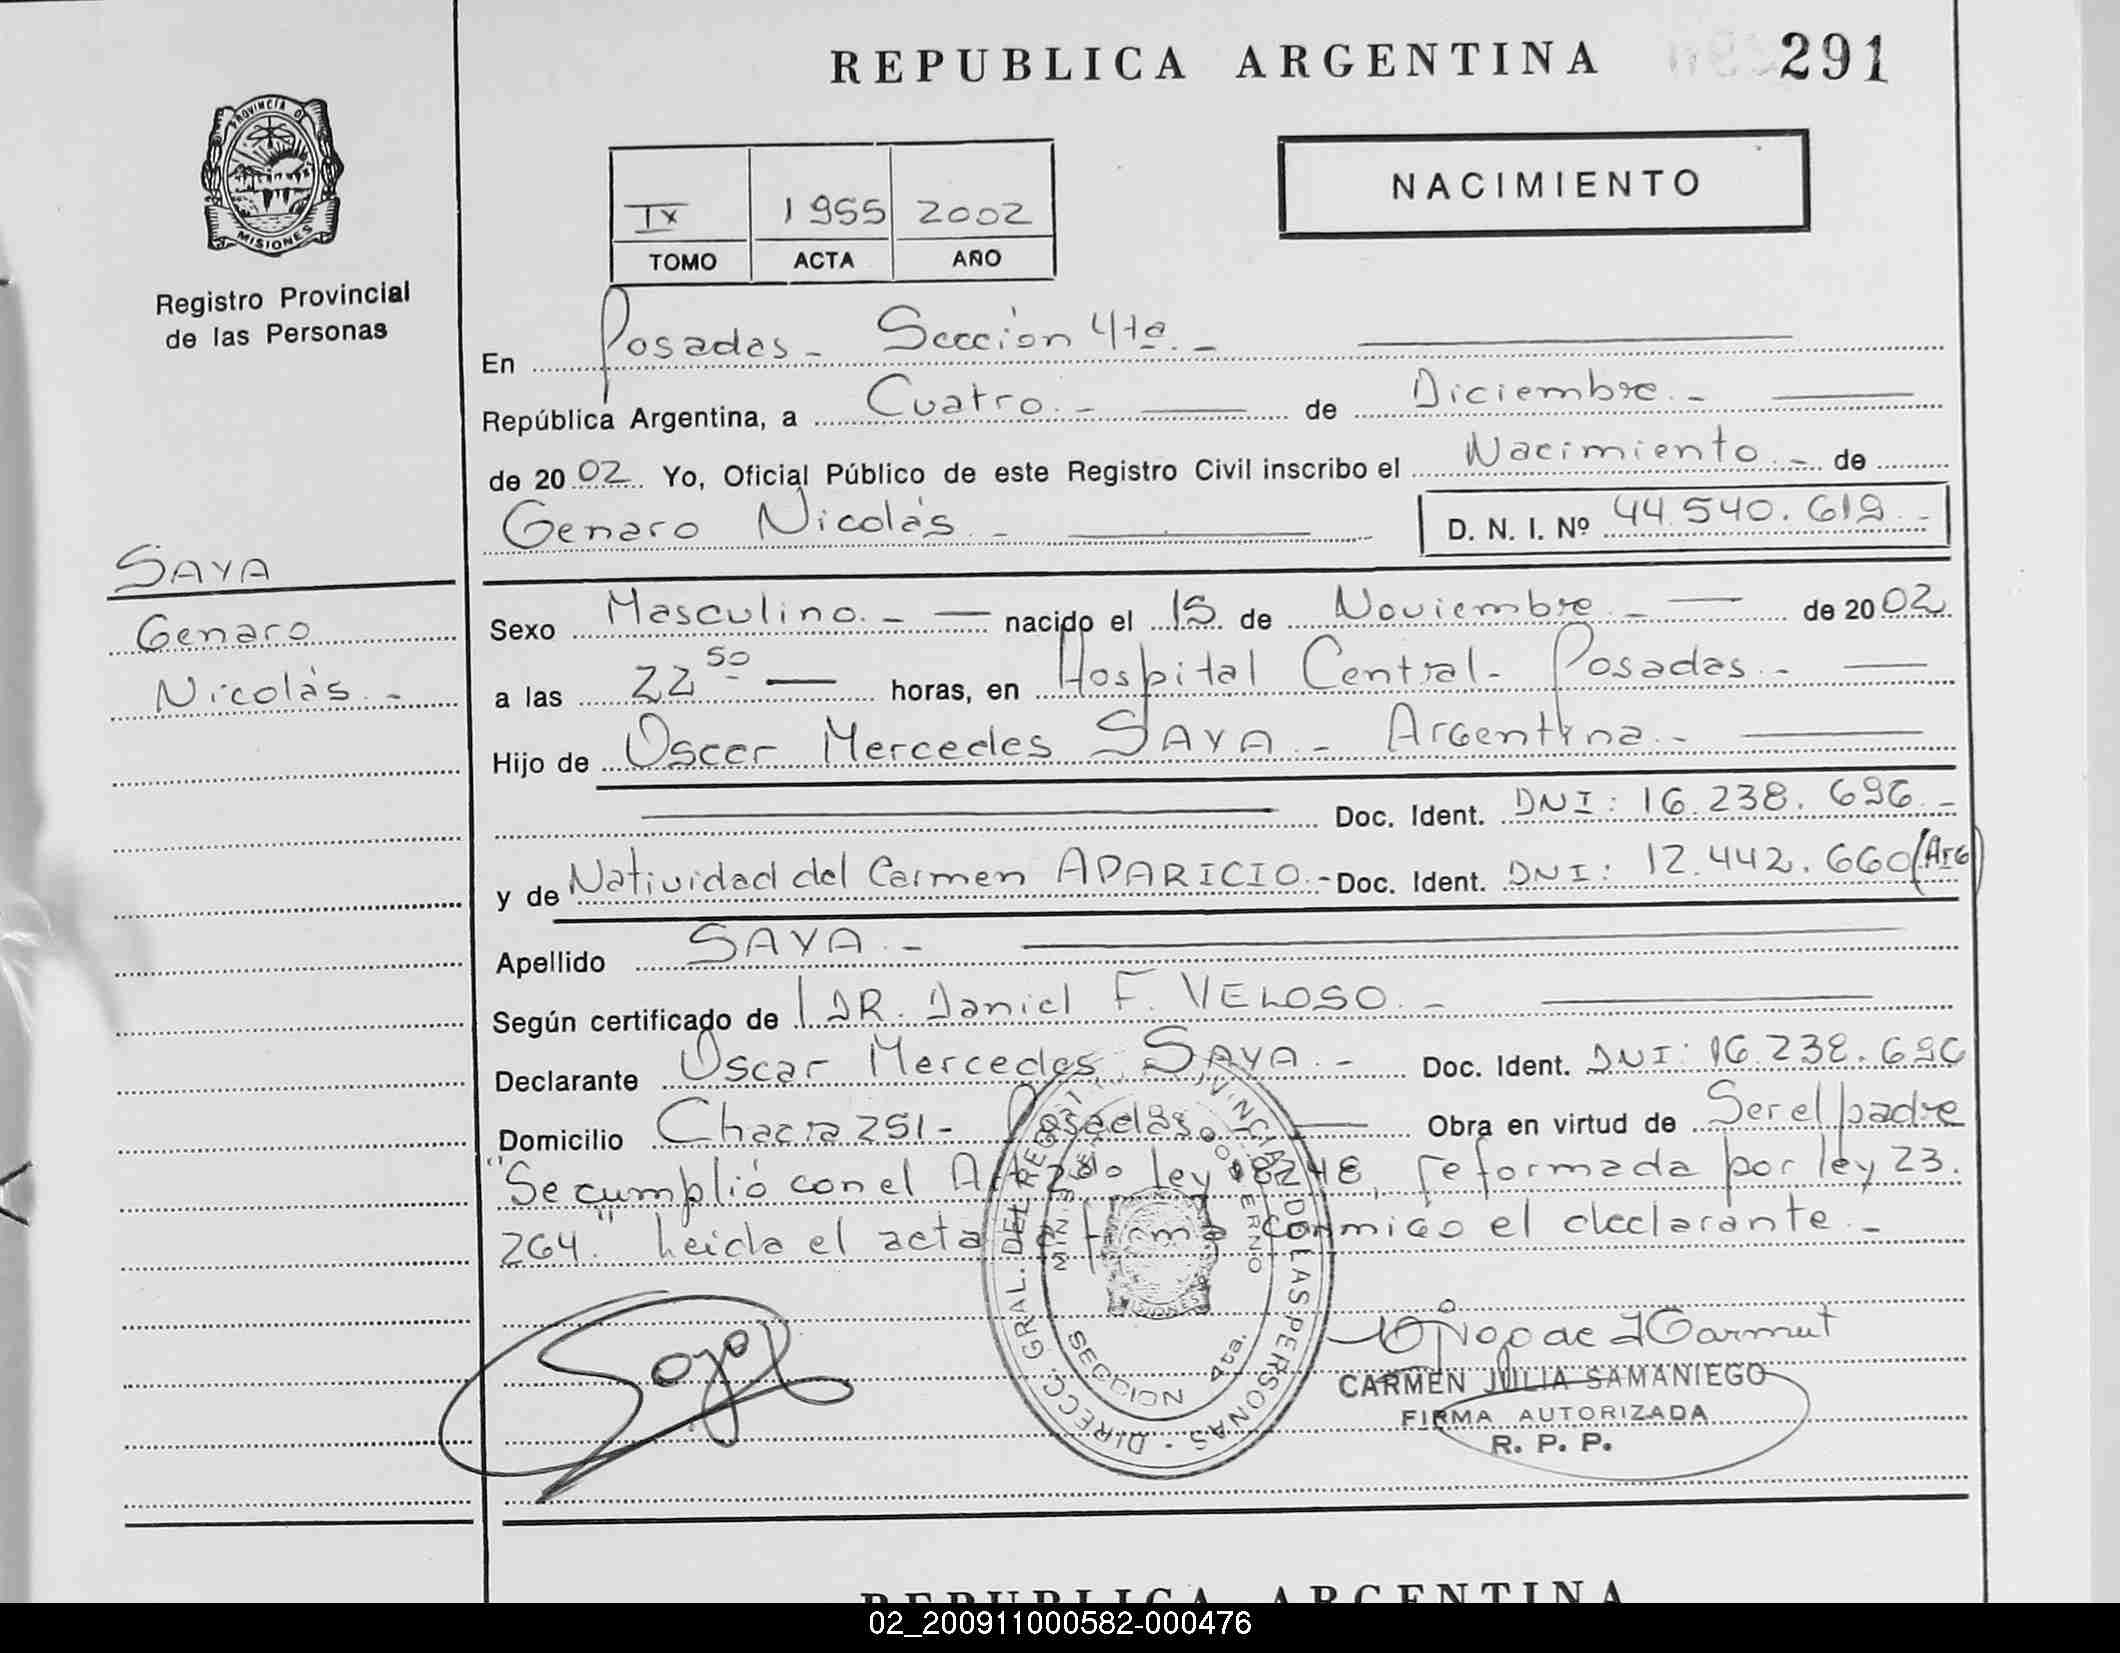 REPUBLICA ARGENTINA 291
PROVINCIA DE
MISIONES
Registro Provincial
de las Personas
NACIMIENTO
IX 1955 2002
TOMO ACTA AÑO
En Posadas - Sección 4ta. -
República Argentina, a Cuatro. - de Diciembre. -
de 2002 Yo, Oficial Público de este Registro Civil inscribo el Nacimiento. - de
Genaro Nicolás. - D. N. I. Nº 44.540.619 -
SAYA
Genaro
Nicolás. -
Sexo Masculino. - nacido el 15 de Noviembre. - de 2002
a las 22 50 horas, en Hospital Central - Posadas. -
Hijo de Oscar Mercedes SAYA - Argentina. -
Doc. Ident. DNI: 16.238.696. -
y de Natividad del Carmen APARICIO. - Doc. Ident. DNI: 12.442.660 (Arg)
Apellido SAYA. -
Según certificado de DR. Daniel F. VELOSO. -
Declarante Oscar Mercedes SAYA. - Doc. Ident. DNI: 16.238.696
Domicilio Chacra 251 - Posadas. Obra en virtud de Ser el padre
"Se cumplió con el Art 2do ley 18248, reformada por ley 23.
264." Leida el acta la firma conmigo el declarante. -
DIRECC. GRAL. DEL REGIST. PROVINCIAL DE LAS PERSONAS
SECCION 4ta.
MISIONES
Saya
CARMEN JULIA SAMANIEGO
FIRMA AUTORIZADA
R. P. P.
REPUBLICA ARGENTINA
02_200911000582-000476